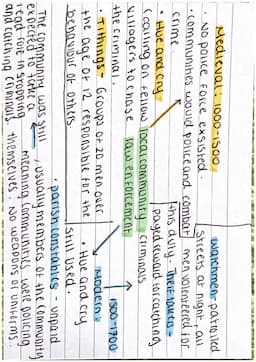 Medieval - 1000-1500
· No police force exsisted.
· communities would police and combat
crime.
· Hue and cry
(calling on fellow
villagers to chase
the criminal.
· Tithings - Groups of 20 men over
the age of 12 responsible for the
behaviour of others.
local community
law enforcement
Watchmen patrolled
streets at night all
men volunteered for
this duty. Thief takers -
payed reward for catching
criminals
Modern -
1500-1700
· Hue and cry
still used.
· parish constables - unpaid
, usually members of the community
meaning communities were policing
themselves. No weapons or uniforms.
The community was still
expected to take a
lead role in stopping
and catching criminals